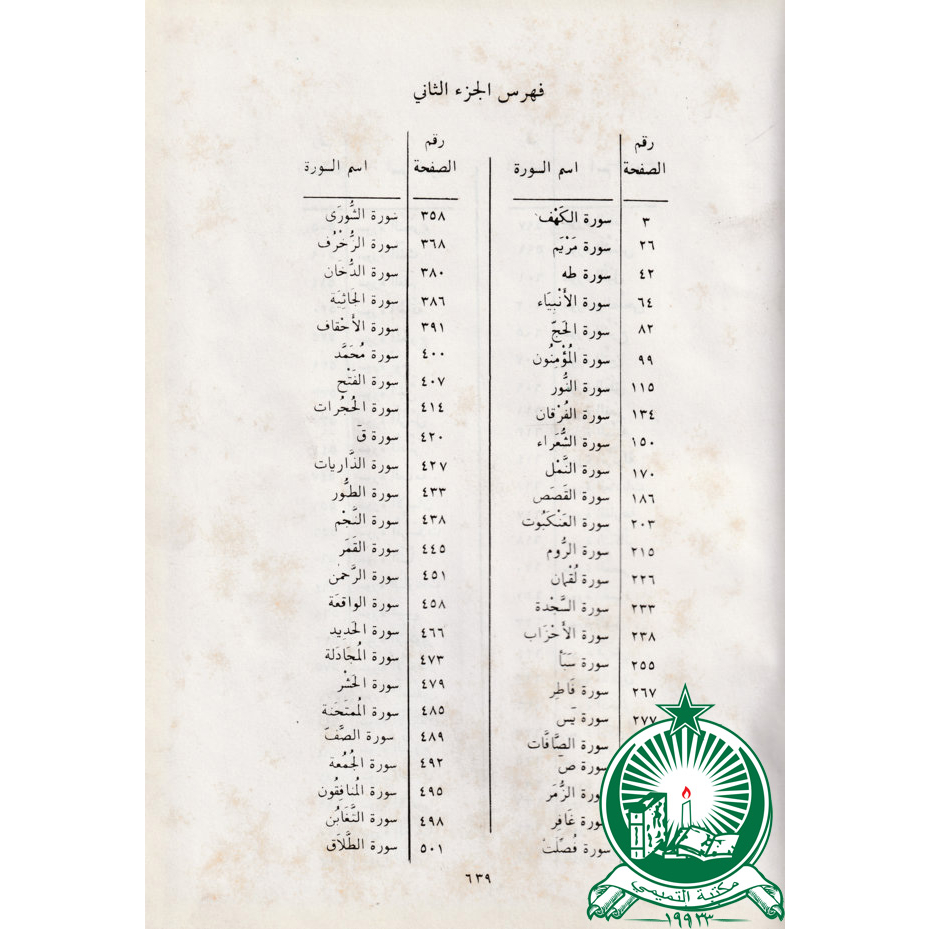 فهرس الجزء الثاني
رقم الصفحة اسم السورة
٣ سورة الكَهْف
٢٦ سورة مَرْيَم
٤٢ سورة طه
٦٤ سورة الأَنْبِيَاء
٨٢ سورة الحَجّ
٩٩ سورة المُؤْمِنُون
١١٥ سورة النُّور
١٣٤ سورة الفُرْقان
١٥٠ سورة الشُّعَراء
١٧٠ سورة النَّمْل
١٨٦ سورة القَصَص
٢٠٣ سورة العَنْكَبُوت
٢١٥ سورة الرُّوم
٢٢٦ سورة لُقْمان
٢٣٣ سورة السَّجْدة
٢٣٨ سورة الأَحْزَاب
٢٥٥ سورة سَبَأ
٢٦٧ سورة فَاطِر
٢٧٧ سورة يَس
سورة الصَّافَّات
سورة ص
سورة الزُّمَر
سورة غَافِر
سورة فُصِّلَتْ
رقم الصفحة اسم السورة
٣٥٨ سورة الشُّورَى
٣٦٨ سورة الزُّخْرُف
٣٨٠ سورة الدُّخَان
٣٨٦ سورة الجَاثِيَة
٣٩١ سورة الأَحْقاف
٤٠٠ سورة مُحَمَّد
٤٠٧ سورة الفَتْح
٤١٤ سورة الحُجُرات
٤٢٠ سورة قَ
٤٢٧ سورة الذَّاريات
٤٣٣ سورة الطُّور
٤٣٨ سورة النَّجْم
٤٤٥ سورة القَمَر
٤٥١ سورة الرَّحمٰن
٤٥٨ سورة الواقعَة
٤٦٦ سورة الحَديد
٤٧٣ سورة المُجَادَلة
٤٧٩ سورة الحَشْر
٤٨٥ سورة المُمتَحَنة
٤٨٩ سورة الصَّفّ
٤٩٢ سورة الجُمُعة
٤٩٥ سورة المُنافِقُون
٤٩٨ سورة التَّغَابُن
٥٠١ سورة الطَّلَاق
٦٣٩
مكتبة التميمي